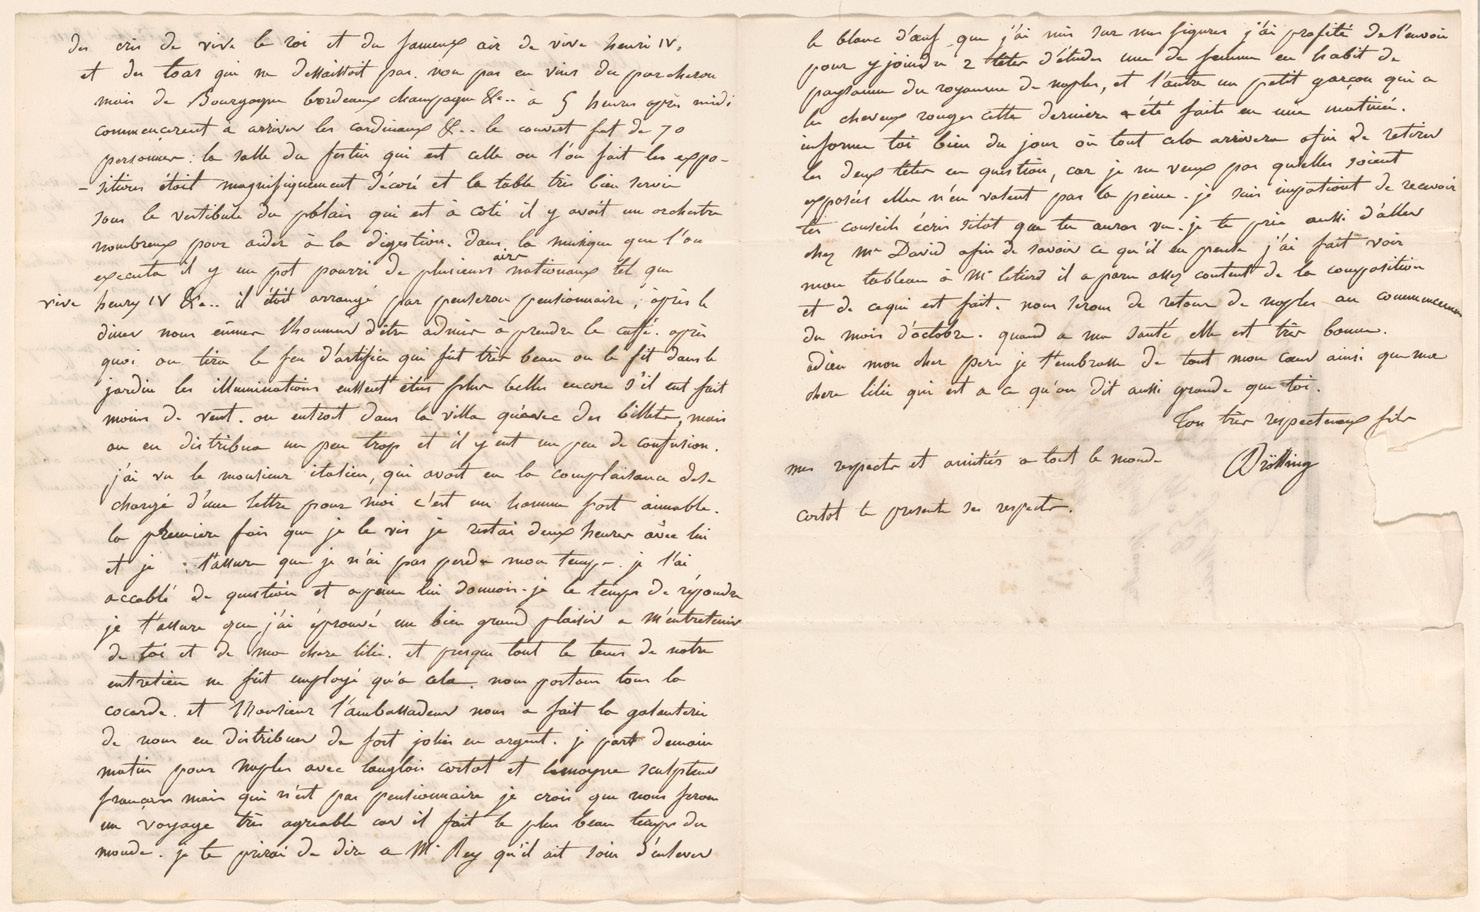 des cris de vive le roi et du fameux air de vive henri IV,
et des toas qui ne dessaissoit pas. non pas en vins du porcheron
mais de Bourgogne bordeaux champagne &c.. à 5 heures après midi
commencerent a arriver les cardinaux &c.. le couvert fut de 70
personnes: la salle du festin qui est celle ou l'on fait les expo-
-sitions étoit magnifiquement décoré et la table très bien servie
sous le vestibule du palais qui est à coté il y avoit un orchestre
nombreux pour aider à la digestion. dans la musique que l'on
executa il y un pot pourri de plusieurs airs nationaux tel que
vive henry IV &c.. il étoit arrangé par penseron pensionnaire, après le
diner nous eumes l'honneur d'être admis à prendre le caffé. après
quoi on tira le feu d'artifice qui fut très beau on le fit dans le
jardin les illuminations eussent étés plus belles encore s'il eut fait
moins de vent. on entroit dans la villa qu'avec des billets, mais
on en distribua un peu trop et il y eut un peu de confusion.
j'ai vu le monsieur italien, qui avoit eu la complaisance de se
chargé d'une lettre pour moi c'est un homme fort aimable.
la premiere fois que je le vis je restai deux heures avec lui
et je t'assure que je n'ai pas perdu mon temps. je l'ai
accablé de question et a peine lui donnois-je le temps de répondre
je t'assure que j'ai éprouvé un bien grand plaisir a m'entretenir
de toi et de ma chere lilie. et presque tout le tems de notre
entretien ne fût employé qu'a cela. nous portons tous la
cocarde. et Monsieur l'ambassadeur nous a fait la galanterie
de nous en distribuer de fort jolies en argent. je part demain
matin pour Naples avec langlois cortot et lemoyne sculpteur
francais mais qui n'est pas pensionnaire je crois que nous ferons
un voyage très agreable car il fait le plus beau temps du
monde. je te prirai de dire a Mr Rey qu'il ait soin d'enlever
le blanc d'œuf que j'ai mis sur mes figures j'ai profité de l'envoi
pour y joindre 2 têtes d'études une de femme en habit de
paysanne du royaume de naples, et l'autre un petit garçon qui a
les cheveux rouges cette derniere a été faite en une matinée.
informe toi bien du jour où tout cela arrivera afin de retirer
les deux têtes en question, car je ne veux pas qu'elles soient
exposées elles n'en valent pas la peine. je suis impatient de recevoir
tes conseils écris sitot que tu auras vu. je te prie aussi d'aller
chez Mr David afin de savoir ce qu'il en pense j'ai fait voir
mon tableau à Mr letiers il a paru assez content de la composition
et de ce qui est fait. nous serons de retour de naples au commencement
du mois d'octobre. quand a ma santé elle est très bonne.
adieu mon cher pere je t'embrasse de tout mon cœur ainsi que ma
chere lilie qui est a ce qu'on dit aussi grande que toi.
Ton très respectueux fils
mes respects et amitiés a tout le monde Drölling
cortot te presente ses respects.